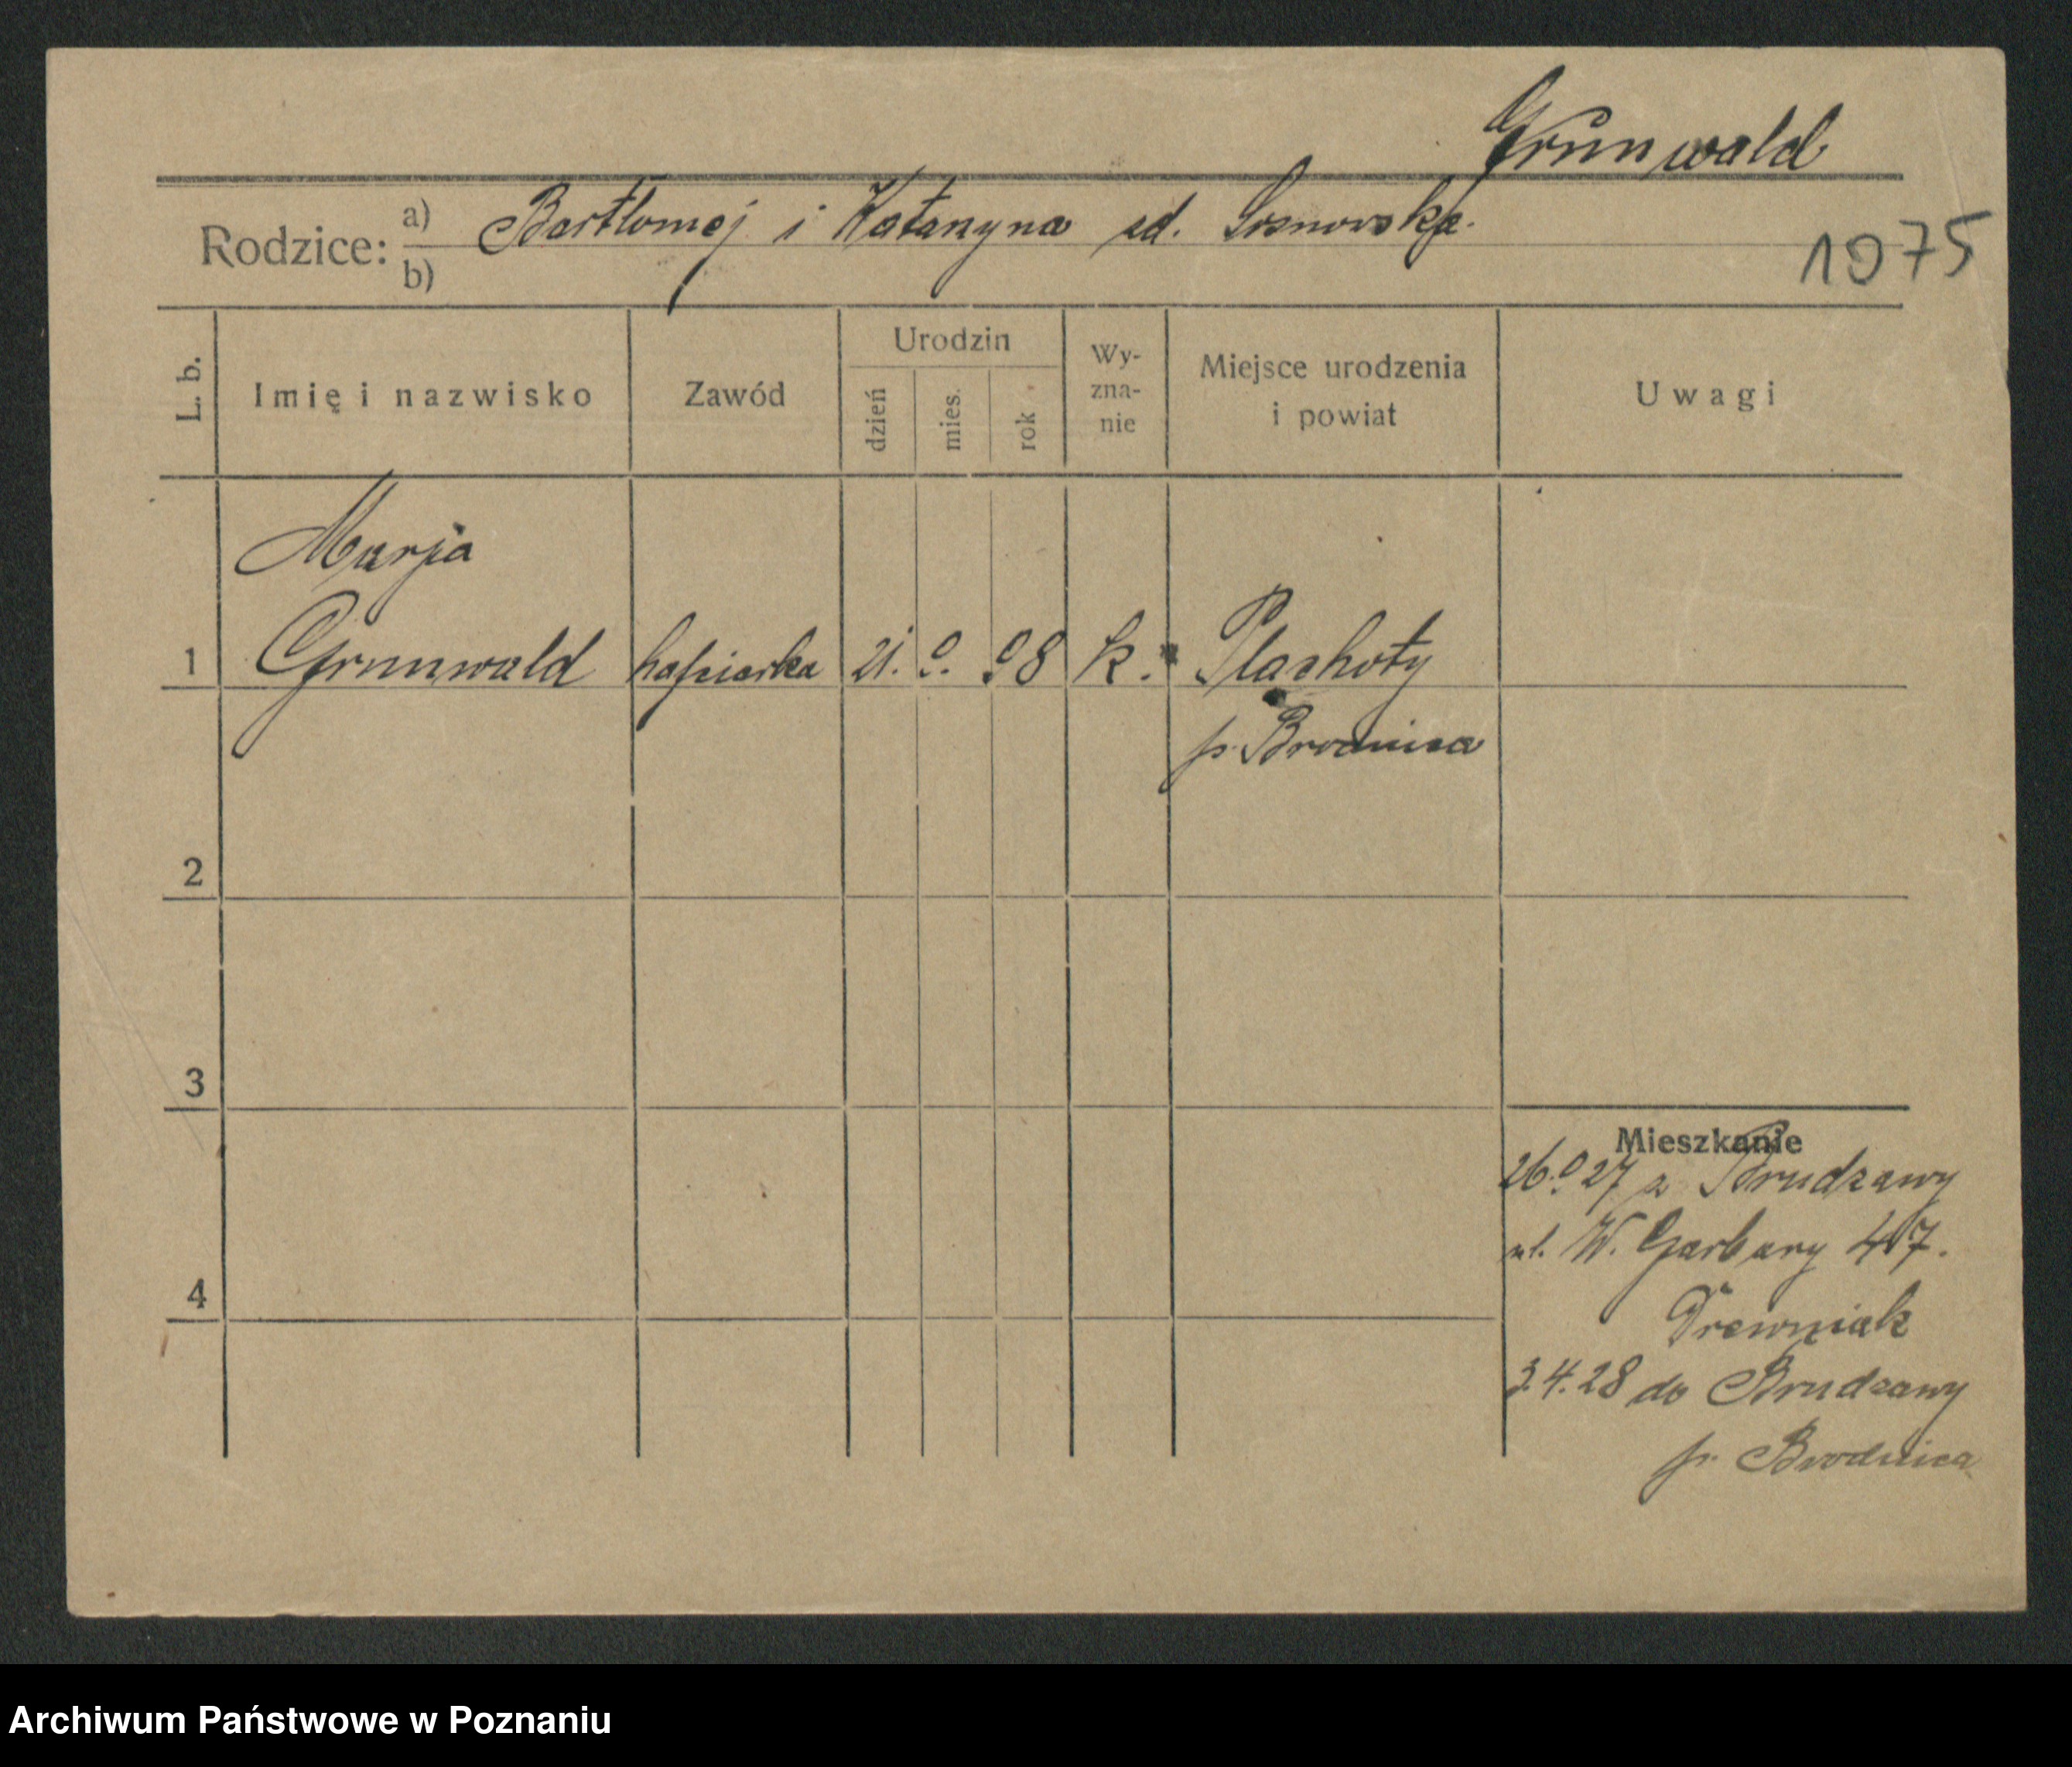 Grunwald
Rodzice: a) Bartłomej i Katarzyna zd. Sosnowska.
b)
1075
L. b. Imię i nazwisko Zawód Urodzin dzień mies. rok Wy-zna-nie Miejsce urodzenia i powiat Uwagi
Marja
1 Grunwald hafciarka 21. 9. 98 k. Plachoty
p. Brodnica
2
3
Mieszkanie
26.9.27 z Brudzawy
ul. W. Garbary 47.
4
Drewniak
3.4.28 do Brudzawy
p. Brodnica
Archiwum Państwowe w Poznaniu